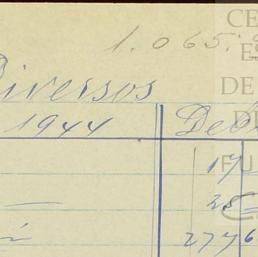 1.065.
Diversos
1944 Deb
17
28
2776
CE
E
DE
D
F U